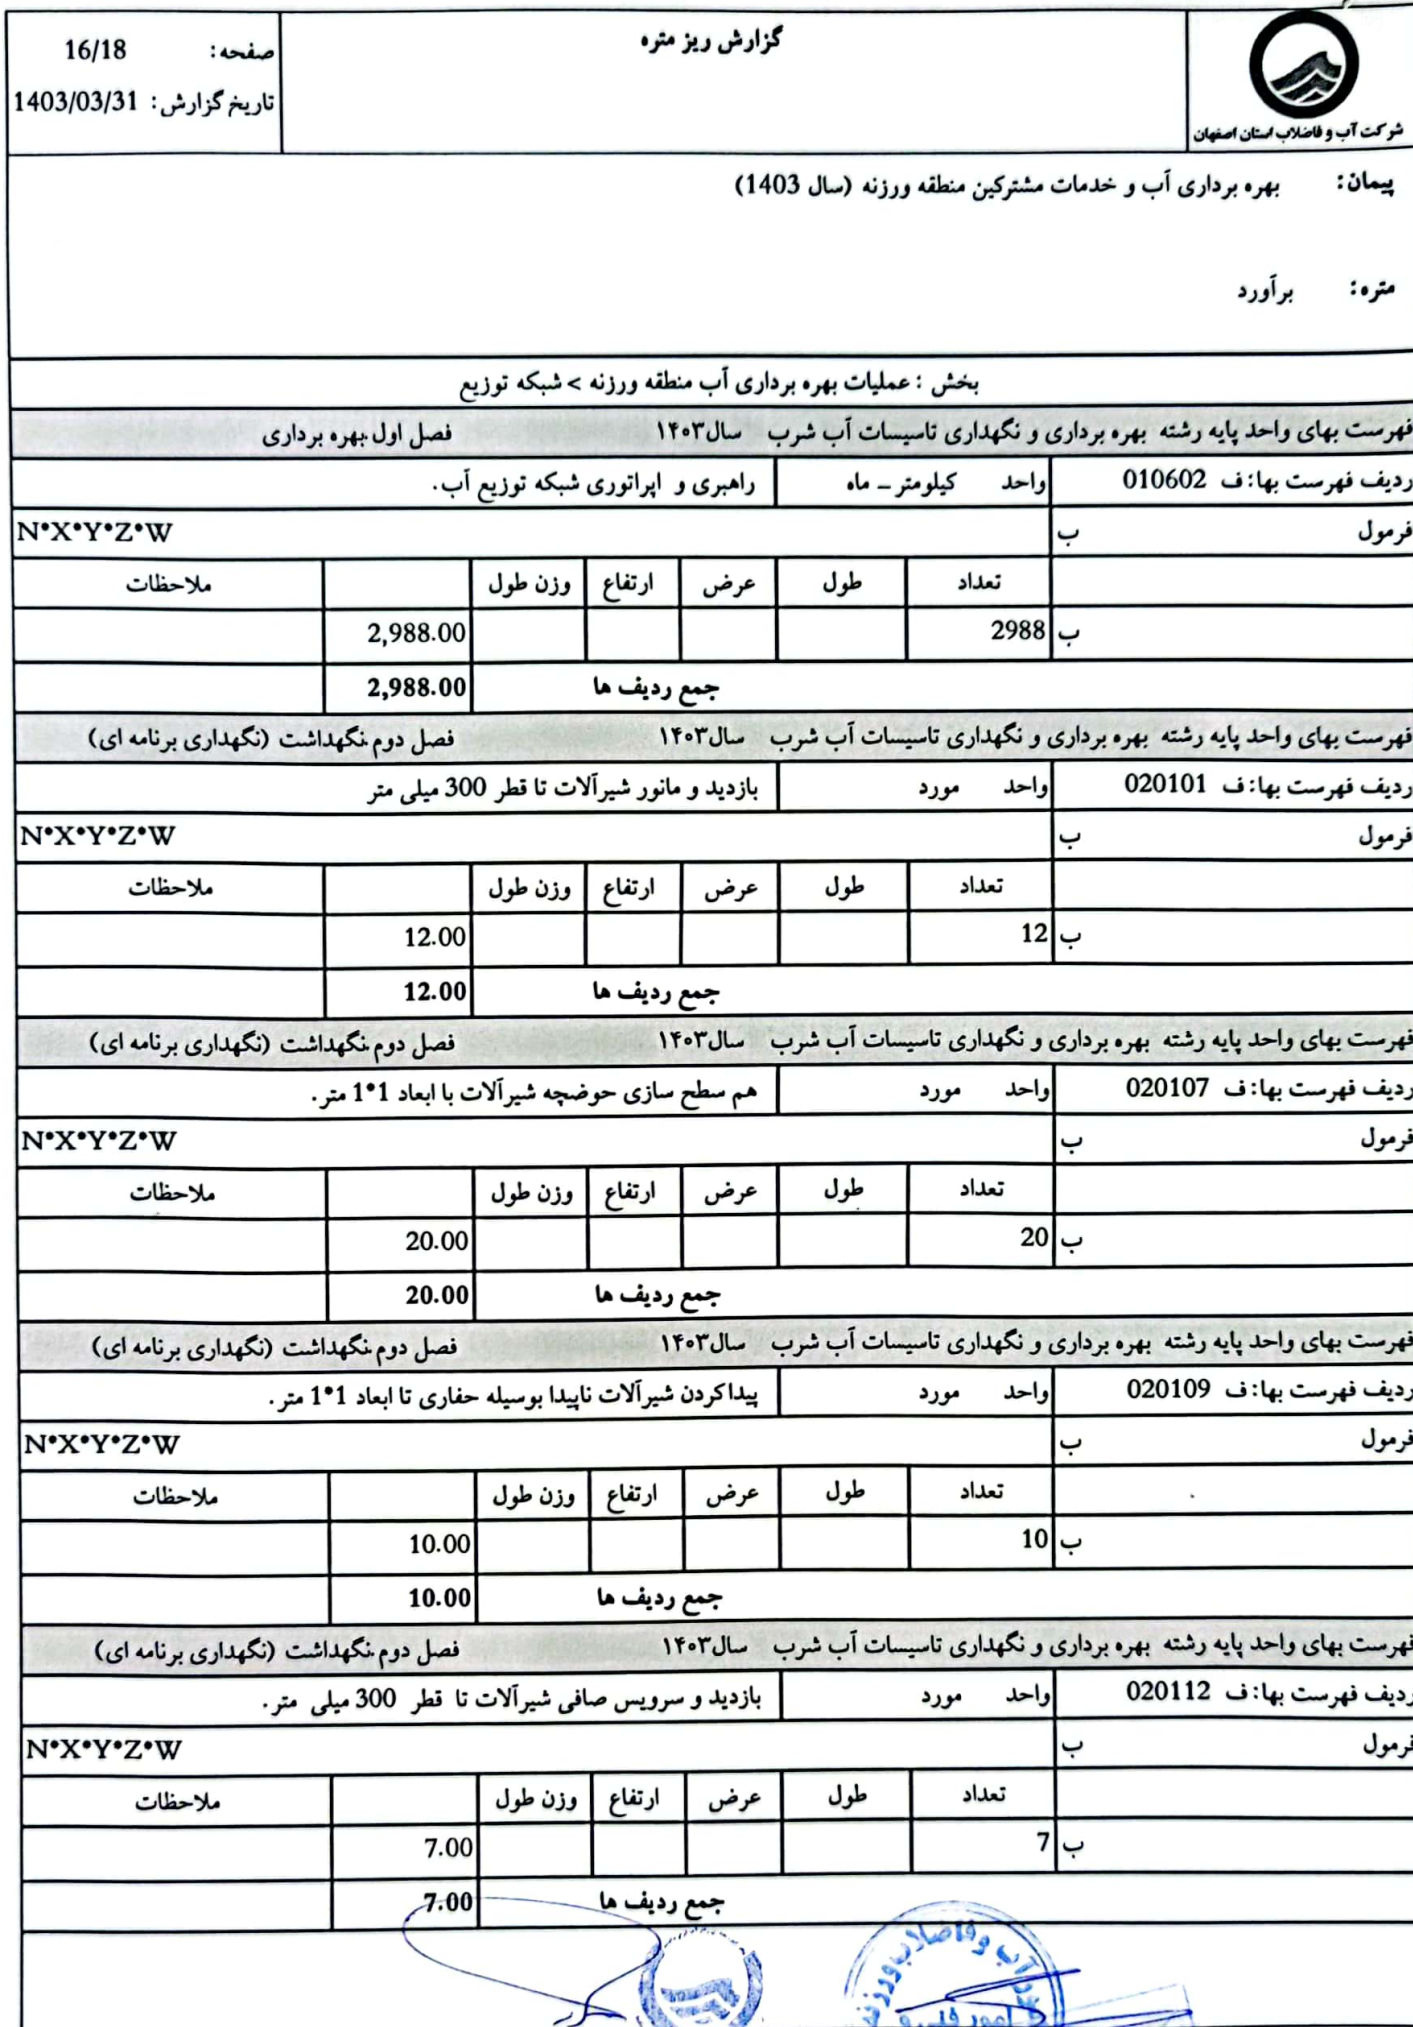 گزارش ریز متره
شرکت آب و فاضلاب استان اصفهان
صفحه: 16/18
تاریخ گزارش: 1403/03/31
پیمان: بهره برداری آب و خدمات مشترکین منطقه ورزنه (سال 1403)
متره: برآورد
بخش : عملیات بهره برداری آب منطقه ورزنه > شبکه توزیع
فهرست بهای واحد پایه رشته بهره برداری و نگهداری تاسیسات آب شرب سال۱۴۰۳ فصل اول بهره برداری
ردیف فهرست بها: ف 010602 واحد کیلومتر – ماه راهبری و اپراتوری شبکه توزیع آب.
فرمول ب N*X*Y*Z*W
تعداد طول عرض ارتفاع وزن طول ملاحظات
ب 2988 2,988.00
جمع ردیف ها 2,988.00
فهرست بهای واحد پایه رشته بهره برداری و نگهداری تاسیسات آب شرب سال۱۴۰۳ فصل دوم نگهداشت (نگهداری برنامه ای)
ردیف فهرست بها: ف 020101 واحد مورد بازدید و مانور شیرآلات تا قطر 300 میلی متر
فرمول ب N*X*Y*Z*W
تعداد طول عرض ارتفاع وزن طول ملاحظات
ب 12 12.00
جمع ردیف ها 12.00
فهرست بهای واحد پایه رشته بهره برداری و نگهداری تاسیسات آب شرب سال۱۴۰۳ فصل دوم نگهداشت (نگهداری برنامه ای)
ردیف فهرست بها: ف 020107 واحد مورد هم سطح سازی حوضچه شیرآلات با ابعاد 1*1 متر.
فرمول ب N*X*Y*Z*W
تعداد طول عرض ارتفاع وزن طول ملاحظات
ب 20 20.00
جمع ردیف ها 20.00
فهرست بهای واحد پایه رشته بهره برداری و نگهداری تاسیسات آب شرب سال۱۴۰۳ فصل دوم نگهداشت (نگهداری برنامه ای)
ردیف فهرست بها: ف 020109 واحد مورد پیداکردن شیرآلات ناپیدا بوسیله حفاری تا ابعاد 1*1 متر.
فرمول ب N*X*Y*Z*W
تعداد طول عرض ارتفاع وزن طول ملاحظات
ب 10 10.00
جمع ردیف ها 10.00
فهرست بهای واحد پایه رشته بهره برداری و نگهداری تاسیسات آب شرب سال۱۴۰۳ فصل دوم نگهداشت (نگهداری برنامه ای)
ردیف فهرست بها: ف 020112 واحد مورد بازدید و سرویس صافی شیرآلات تا قطر 300 میلی متر.
فرمول ب N*X*Y*Z*W
تعداد طول عرض ارتفاع وزن طول ملاحظات
ب 7 7.00
جمع ردیف ها 7.00
آب وفاضلاب ورزنه